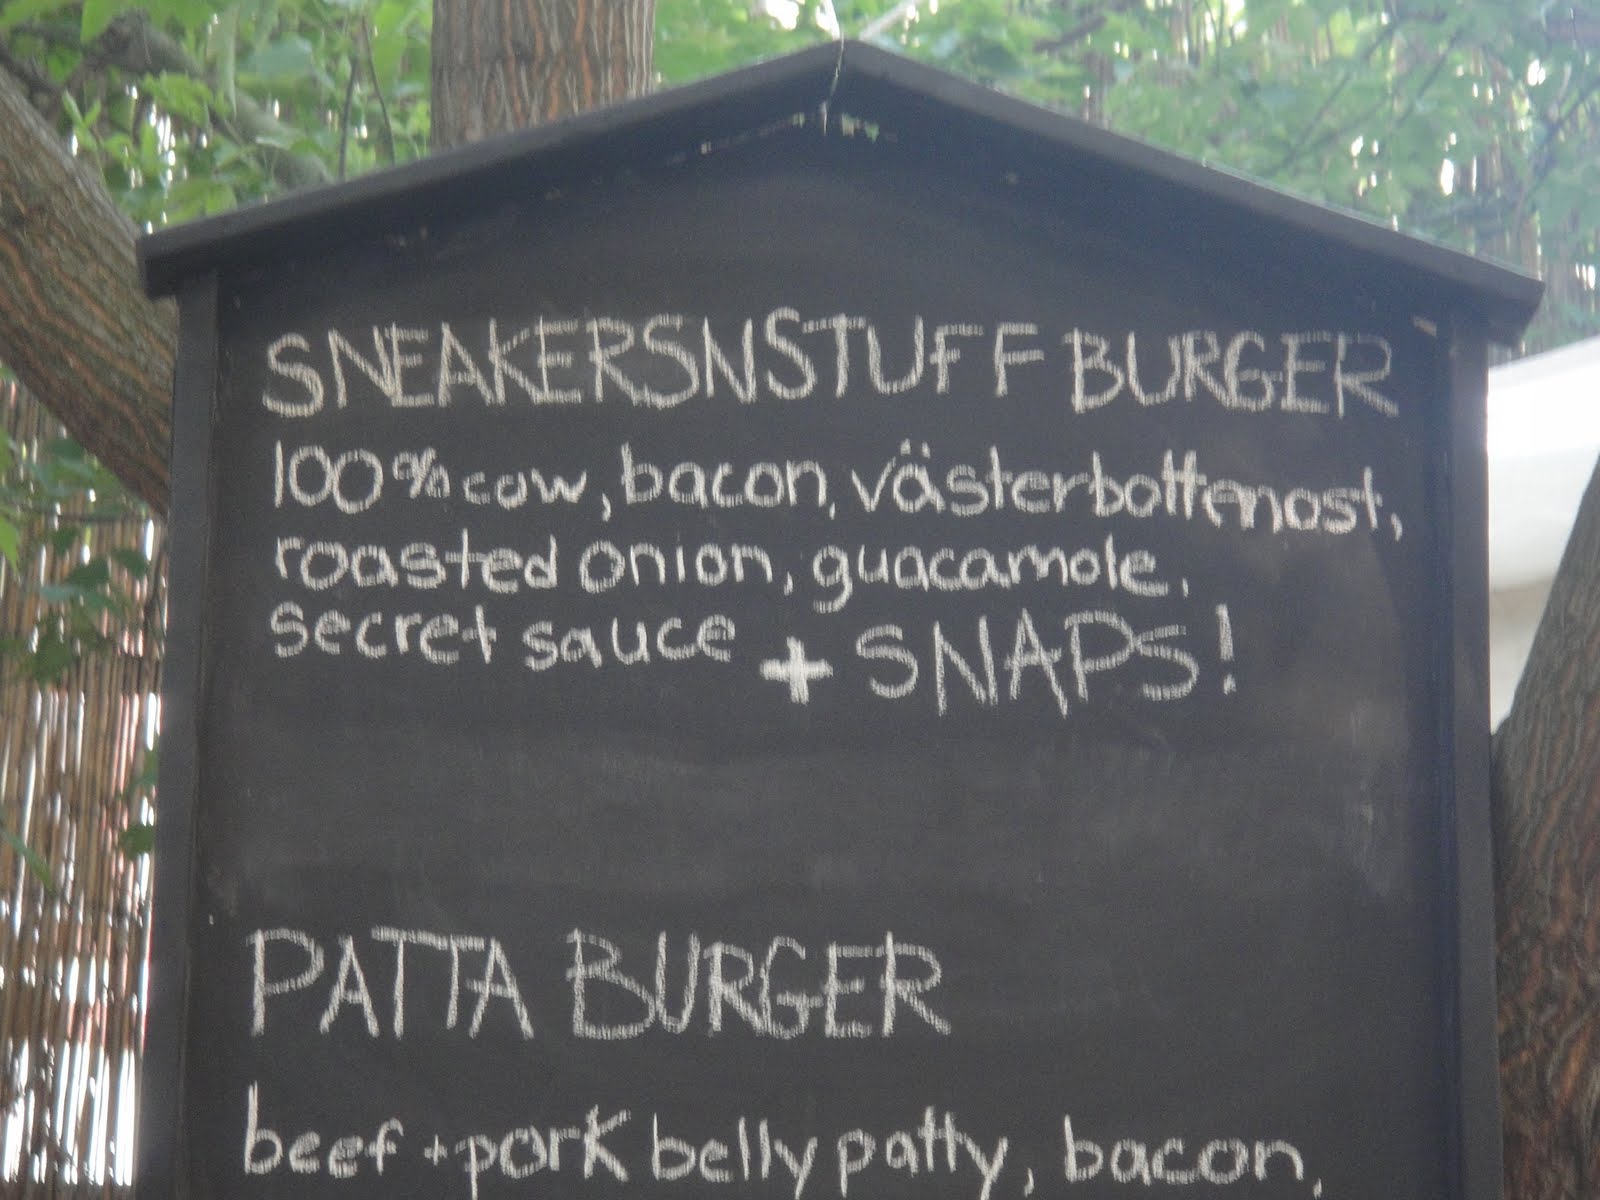 SNEAKERSNSTUFF BURGER
100% cow, bacon, västerbottenost,
roasted onion, guacamole,
secret sauce + SNAPS!
PATTA BURGER
beef + pork belly patty, bacon,